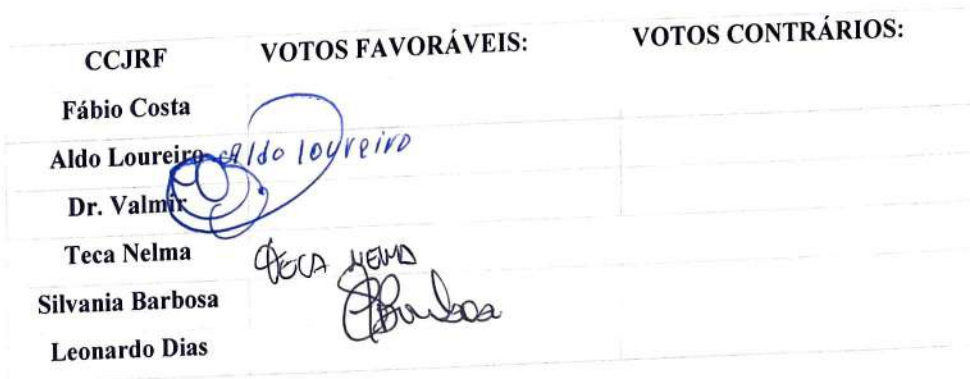 CCJRF VOTOS FAVORÁVEIS: VOTOS CONTRÁRIOS:
Fábio Costa
Aldo Loureiro Aldo loureiro
Dr. Valmir
Teca Nelma TECA NELMA
Silvania Barbosa SBarbosa
Leonardo Dias